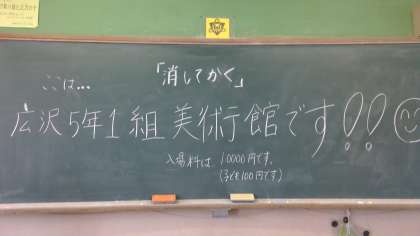 「消してかく」
ここは…
広沢5年1組美術館です!!
入場料は、10000円です。
(子ども100円です)